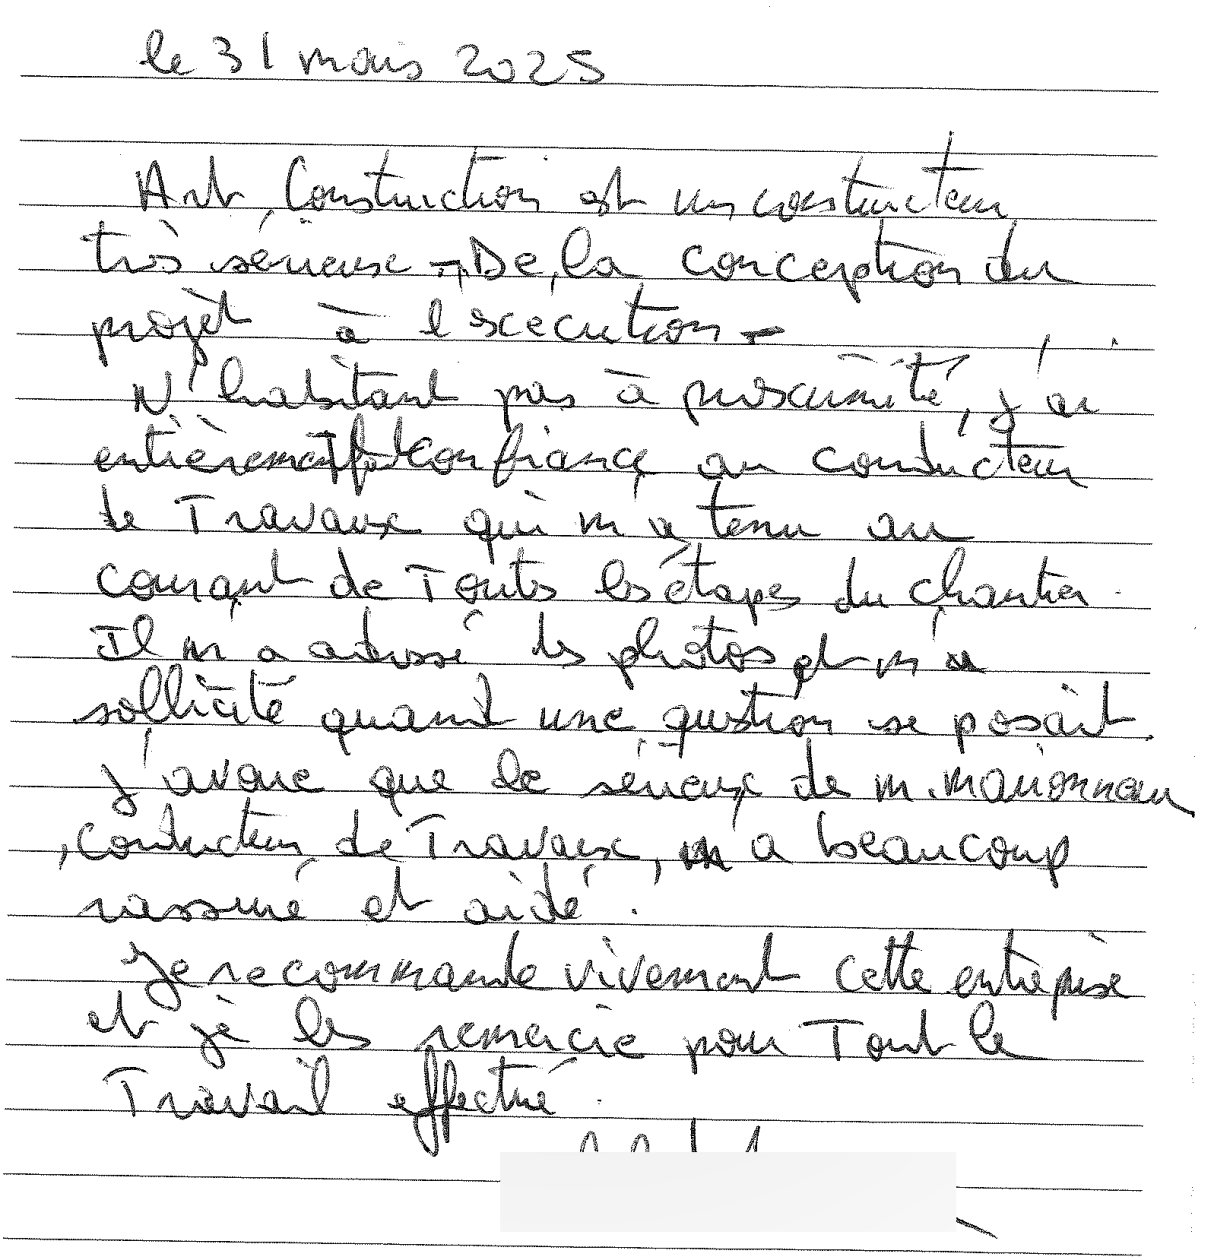 le 31 mars 2025
Art Construction est un constructeur
très sérieux - De la conception du
projet à l'execution -
N'habitant pas à proximité, j'ai
entièrement fait confiance au conducteur
de Travaux qui m'a tenu au
courant de Toutes les étapes du chantier.
Il m'a adressé des photos et m'a
sollicité quand une question se posait.
J'avoue que le sérieux de M. Marionneau
, conducteur de Travaux, m'a beaucoup
rassuré et aidé.
Je recommande vivement cette entreprise
et je les remercie pour Tout le
Travail effectué.